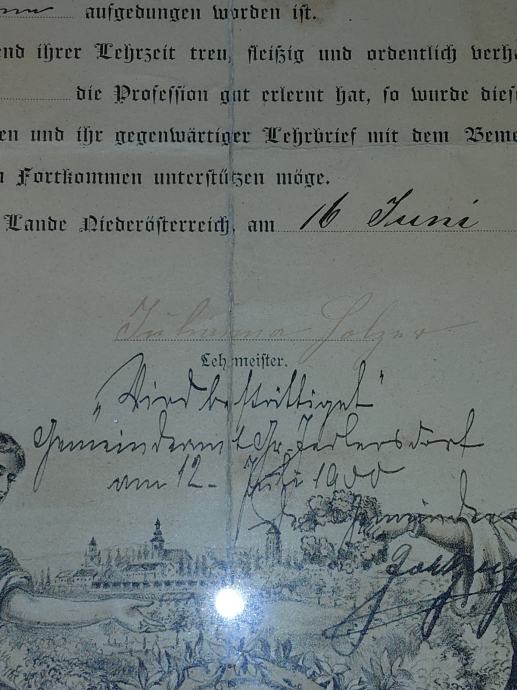 aufgedungen worden ist.
end ihrer Lehrzeit treu, fleißig und ordentlich verh
die Profession gut erlernt hat, so wurde dies
en und ihr gegenwärtiger Lehrbrief mit dem Beme
n Fortkommen unterstützen möge.
Lande Niederösterreich, am 16 Juni
Julianna Holzer
Lehrmeister.
"Wird bestättiget"
Gemeindeamt Gr. Jedlersdorf
am 12. Juli 1900
Der Gemeindevor